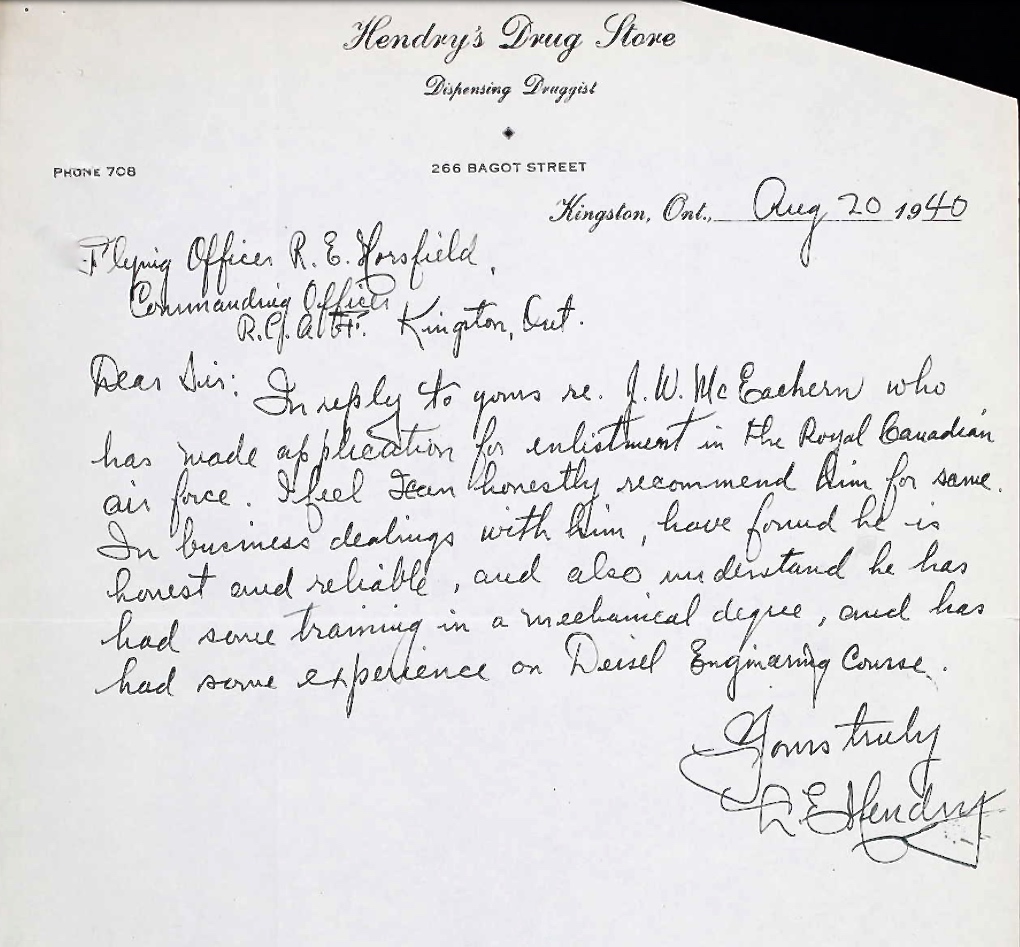 Hendry's Drug Store
Dispensing Druggist
PHONE 708
266 BAGOT STREET
Kingston, Ont., Aug 20 1940
Flying Officer R. E. Horsfield,
Commanding Officer
Kingston, Ont.
Dear Sir:
In reply to yours re. J. W. McEachern who
has made application for enlistment in the Royal Canadian
air force. I feel I can honestly recommend him for same.
In business dealings with him, have found he is
honest and reliable, and also understand he has
had some training in a mechanical degree, and has
had some experience on Deisel Enginering Course.
Yours truly
E Hendry